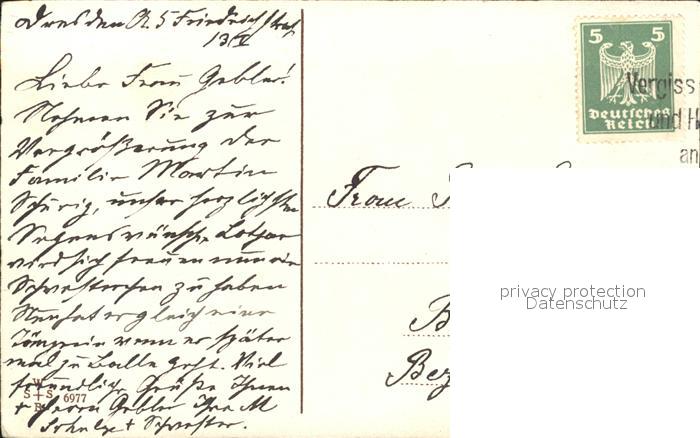 Dresden A. 5 Friedrichstraß
13 V
Liebe Frau Gebler!
Nehmen Sie zur
Vergrößerung der
Familie Martin
Schurig, unsre herzlichsten
Segenswünsche, Lothar
wird sich freuen nun ein
Schwesterchen zu haben
Nun hat er gleich eine
Tänzerin wenn er später
mal zu Balle geht. Viel
freundliche Grüße Ihnen
+ Herrn Gebler Ihre M
Schulze + Schwester.
W
S+S 6977
B
5 5
Deutsches
Reich
Vergiss
und H
an
Frau
B
Bez
privacy protection
Datenschutz